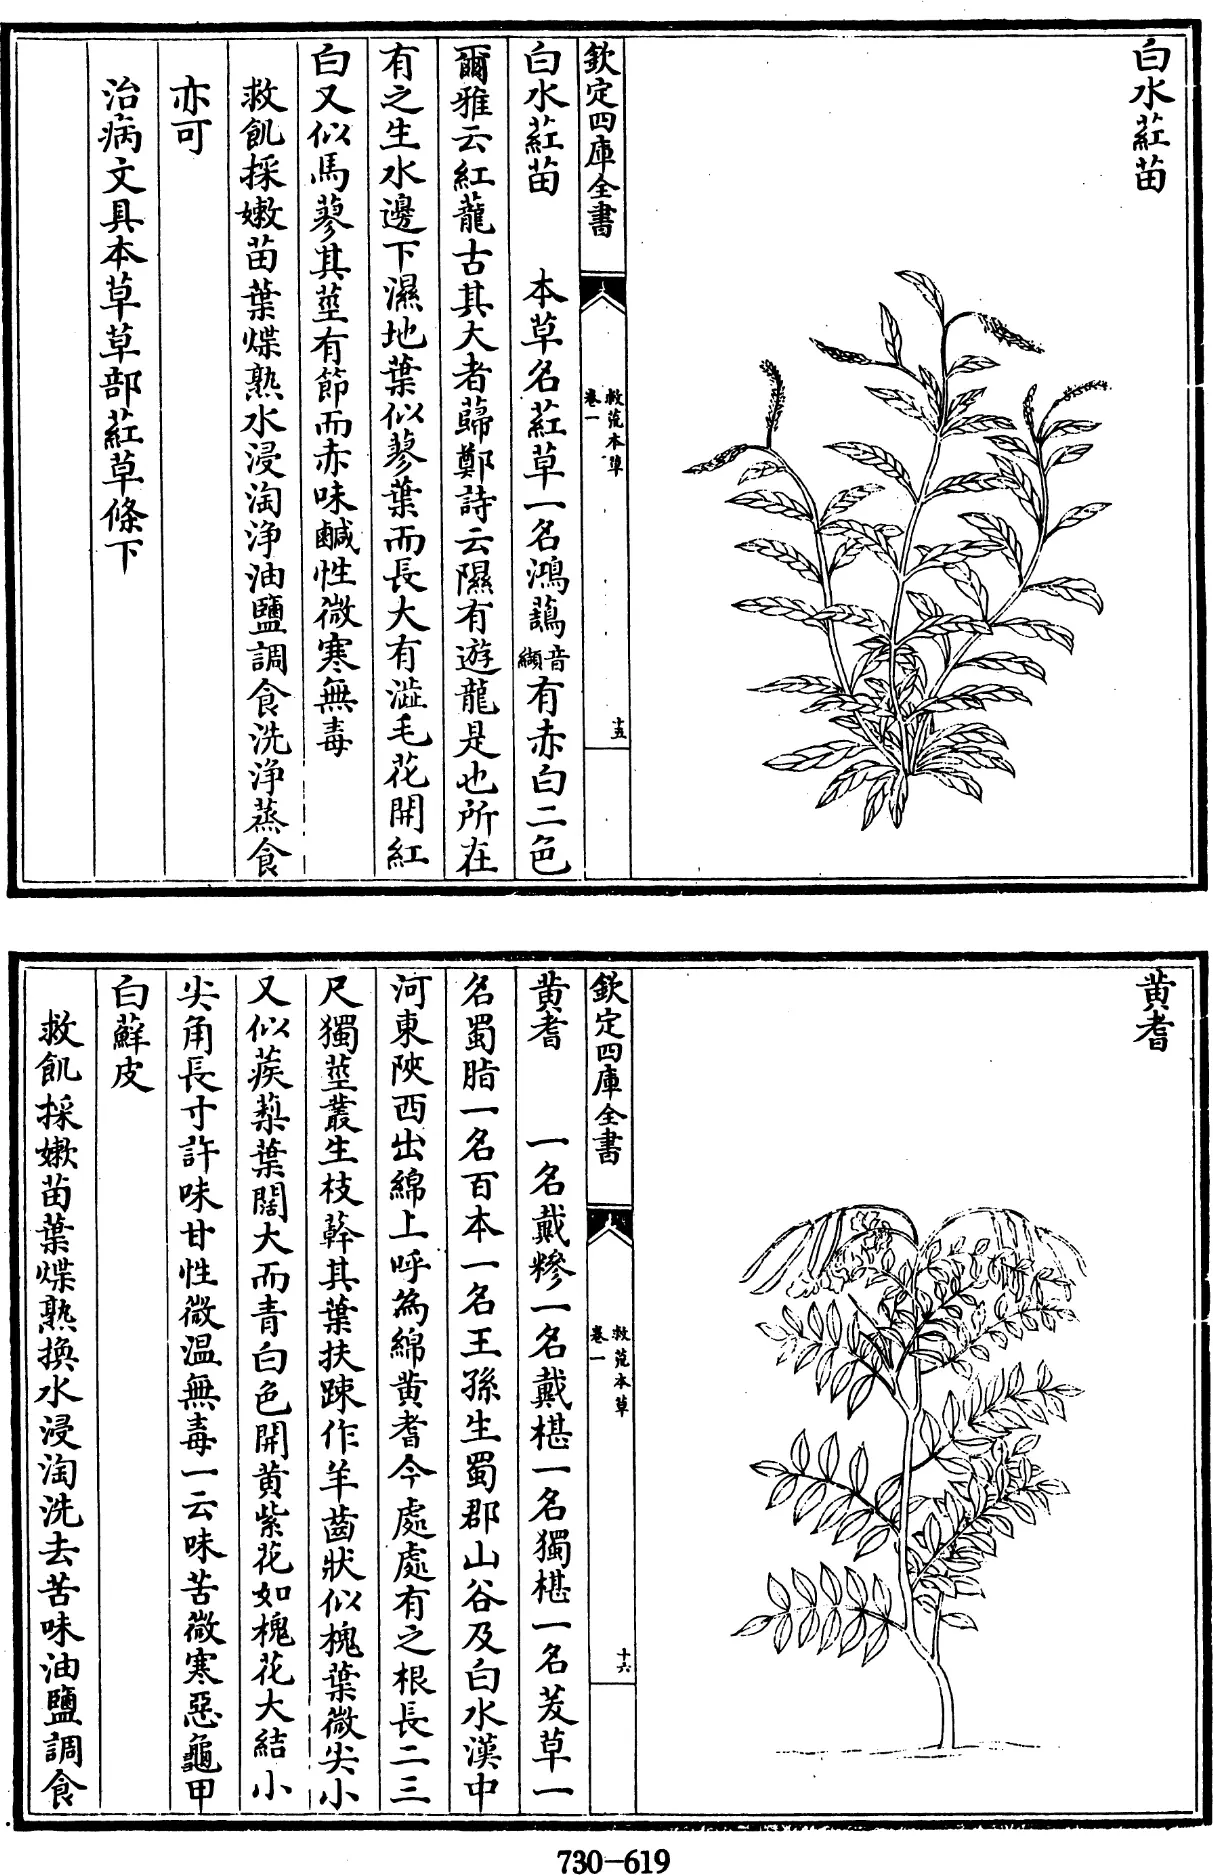 白水葒苗
欽定四庫全書
救荒本草
卷一
十五
白水葒苗　本草名葒草一名鴻䕬音纈有赤白二色
爾雅云紅蘢古其大者蘬鄭詩云隰有遊龍是也所在
有之生水邊下濕地葉似蓼葉而長大有澁毛花開紅
白又似馬蓼其莖有節而赤味鹹性微寒無毒
救飢採嫩苗葉煠熟水浸淘淨油鹽調食洗淨蒸食
亦可
治病文具本草草部葒草條下
黃耆
欽定四庫全書
救荒本草
卷一
十六
黃耆　一名戴糝一名戴椹一名獨椹一名芰草一
名蜀脂一名百本一名王孫生蜀郡山谷及白水漢中
河東陝西出綿上呼為綿黃耆今處處有之根長二三
尺獨莖叢生枝幹其葉扶踈作羊齒狀似槐葉微尖小
又似蒺藜葉闊大而青白色開黃紫花如槐花大結小
尖角長寸許味甘性微温無毒一云味苦微寒惡龜甲
白蘚皮
救飢採嫩苗葉煠熟換水浸淘洗去苦味油鹽調食
730-619